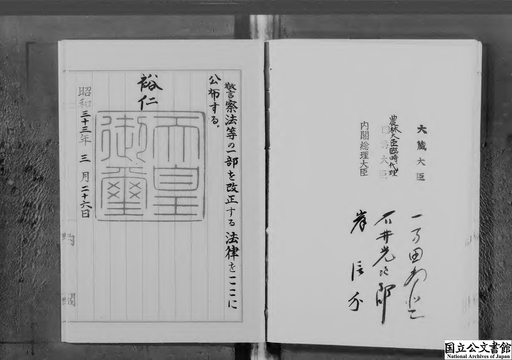 警察法等の一部を改正する法律をここに
公布する。
裕仁
天皇
御璽
昭和三十三年三月二十六日
内閣
大蔵大臣
農林大臣臨時代理
内閣総理大臣
石井光次郎
岸信介
国立公文書館
National Archives of Japan